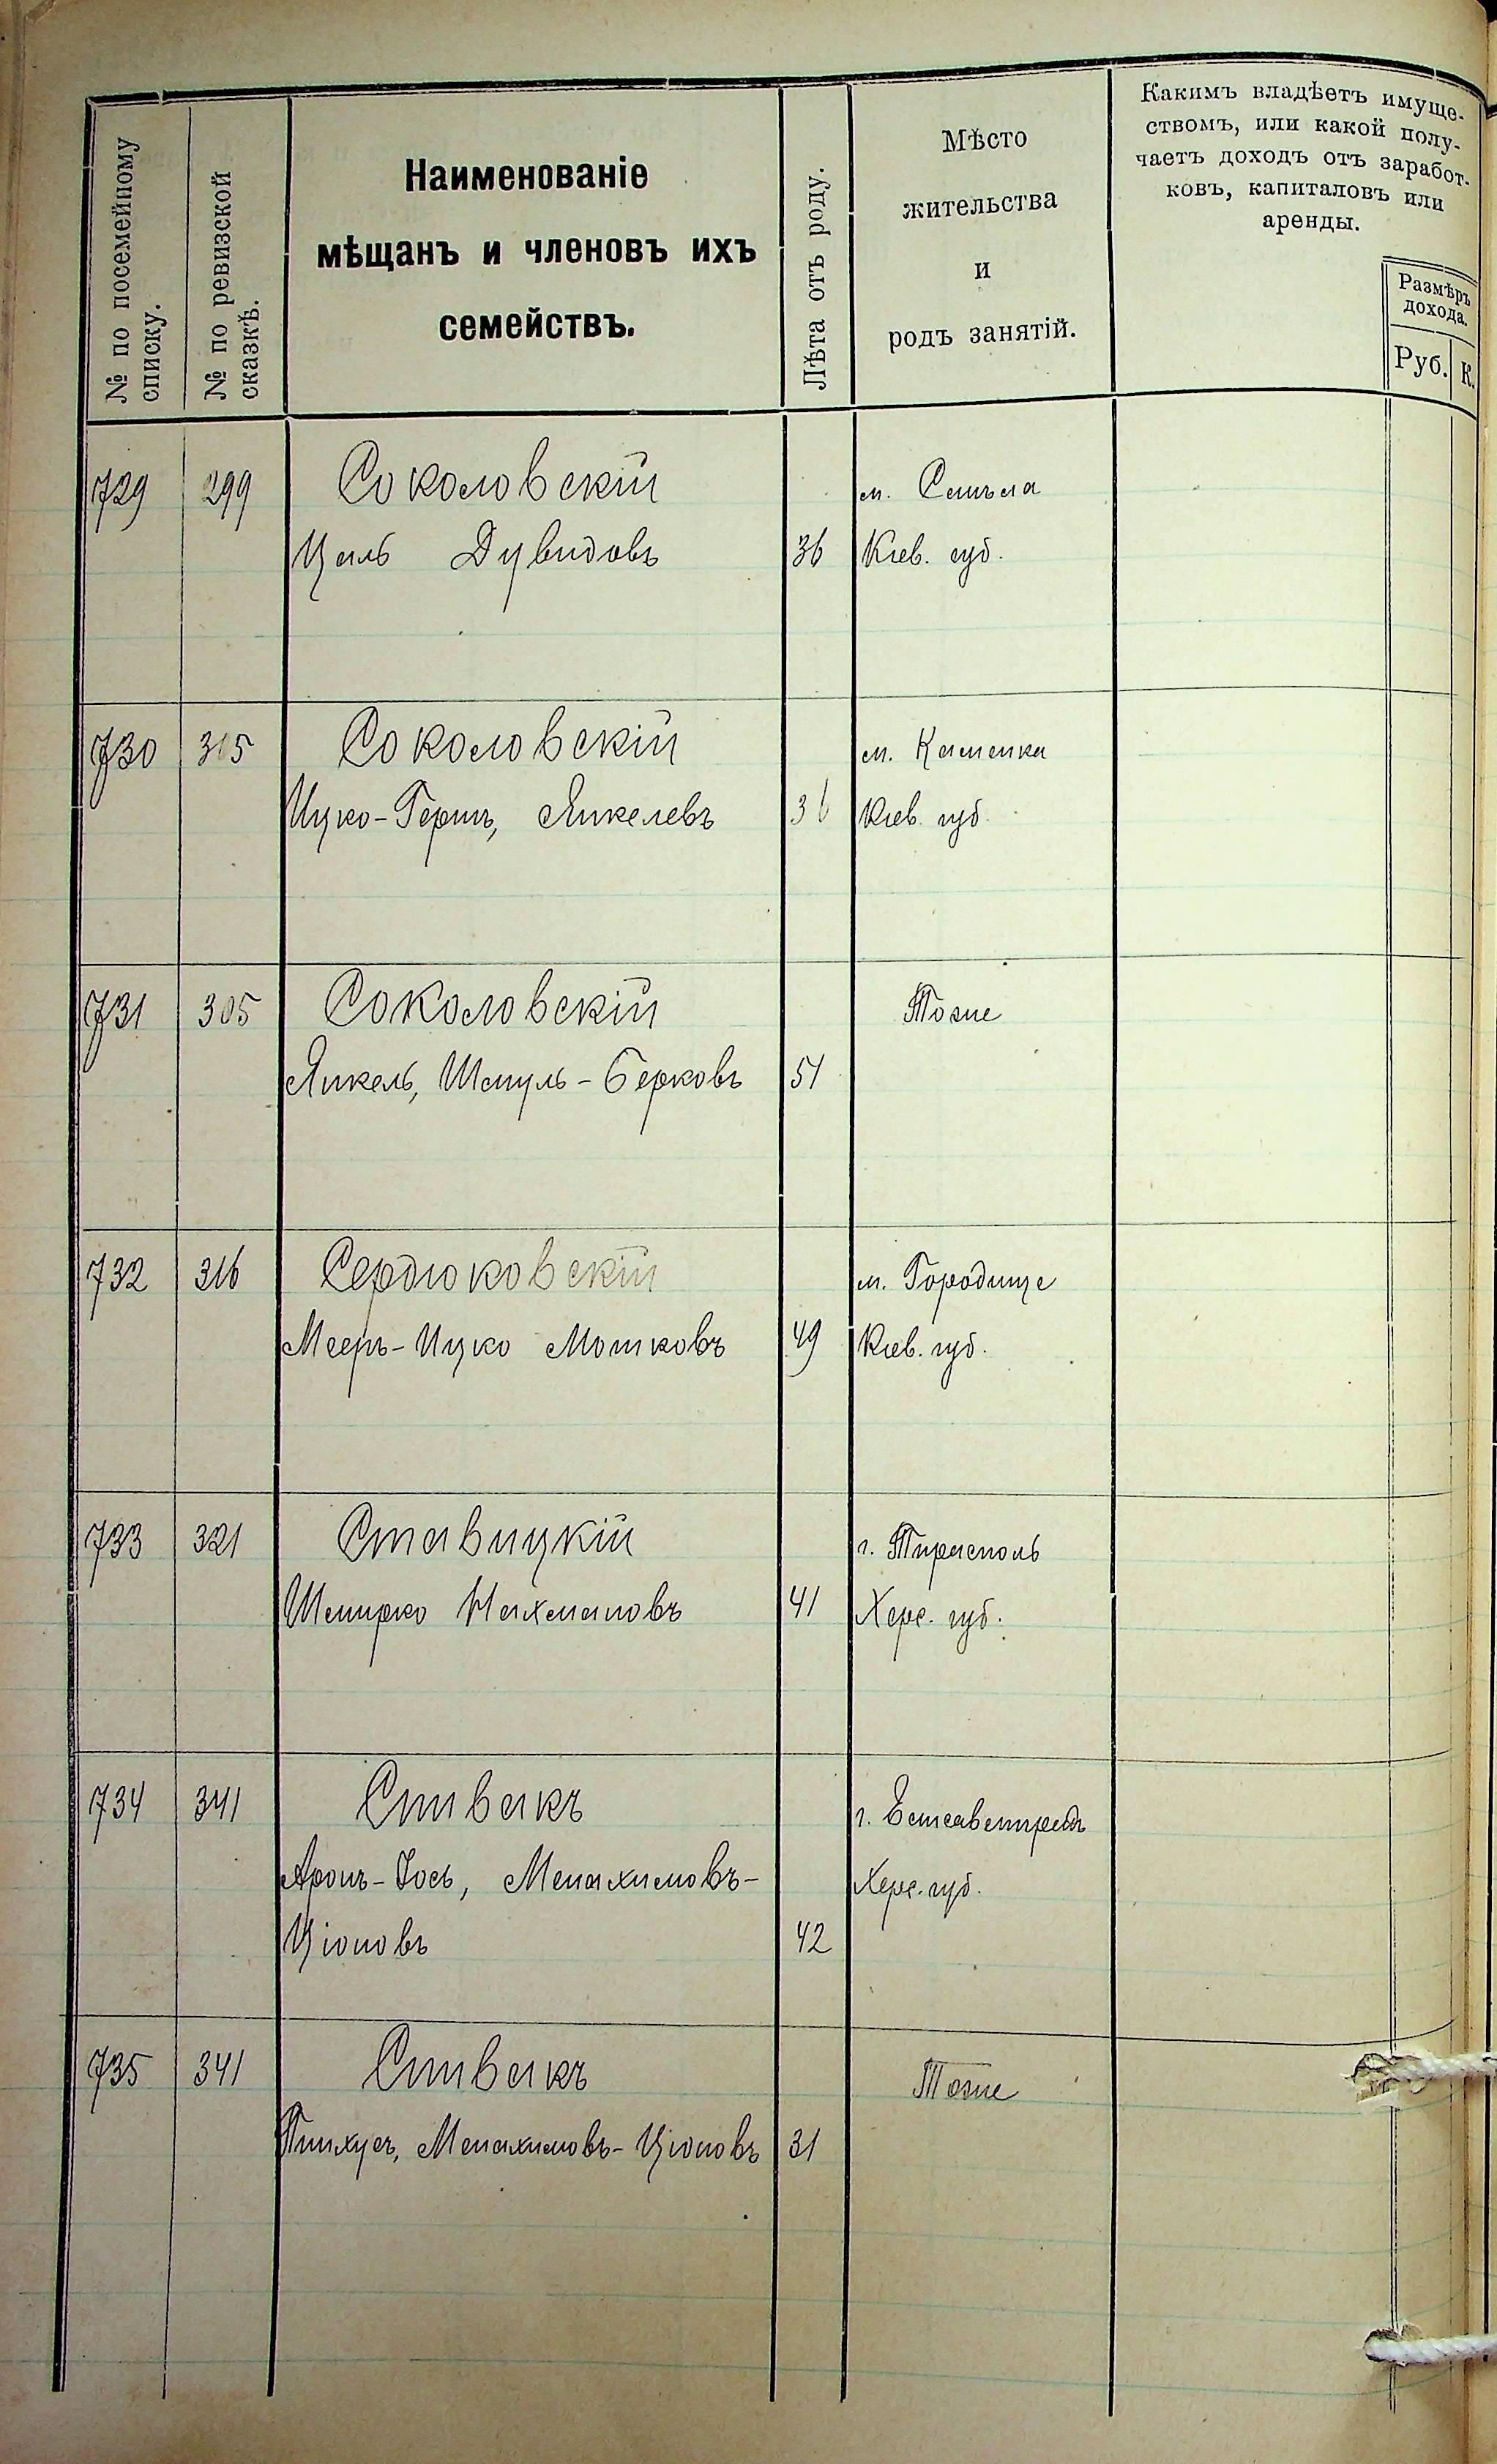 № по посемейному
списку.
№ по ревизской
сказкѣ.
Наименованіе
мѣщанъ и членовъ ихъ
семействъ.
Лѣта отъ роду.
Мѣсто
жительства
и
родъ занятій.
Какимъ владѣетъ имуще-
ствомъ, или какой полу-
чаетъ доходъ отъ заработ-
ковъ, капиталовъ или
аренды.
Размѣръ
дохода.
Руб. К.
729 299 Соколовскій м.
Цаль Дувидовъ 36 Кіев. губ.
730 315 Соколовскій м. Каменка
Ицко-Гершъ, Янкелевъ 36 Кіев. губ.
731 305 Соколовскій Тоже
Янкель, Шмуль-Берковъ 51
732 316 Сердюковскій м. Городище
Мееръ-Ицко Мошковъ 49 Кіев. губ.
733 321 Ставицкій г. Тирасполь
Шмирко Нахмановъ 41 Херс. губ.
734 341 Спивакъ г. Елисаветградъ
Аронъ-Іось, Менахимовъ- Херс. губ.
Ціоновъ 42
735 341 Спивакъ Тоже
Пинхусъ, Менахимовъ-Ціоновъ 31